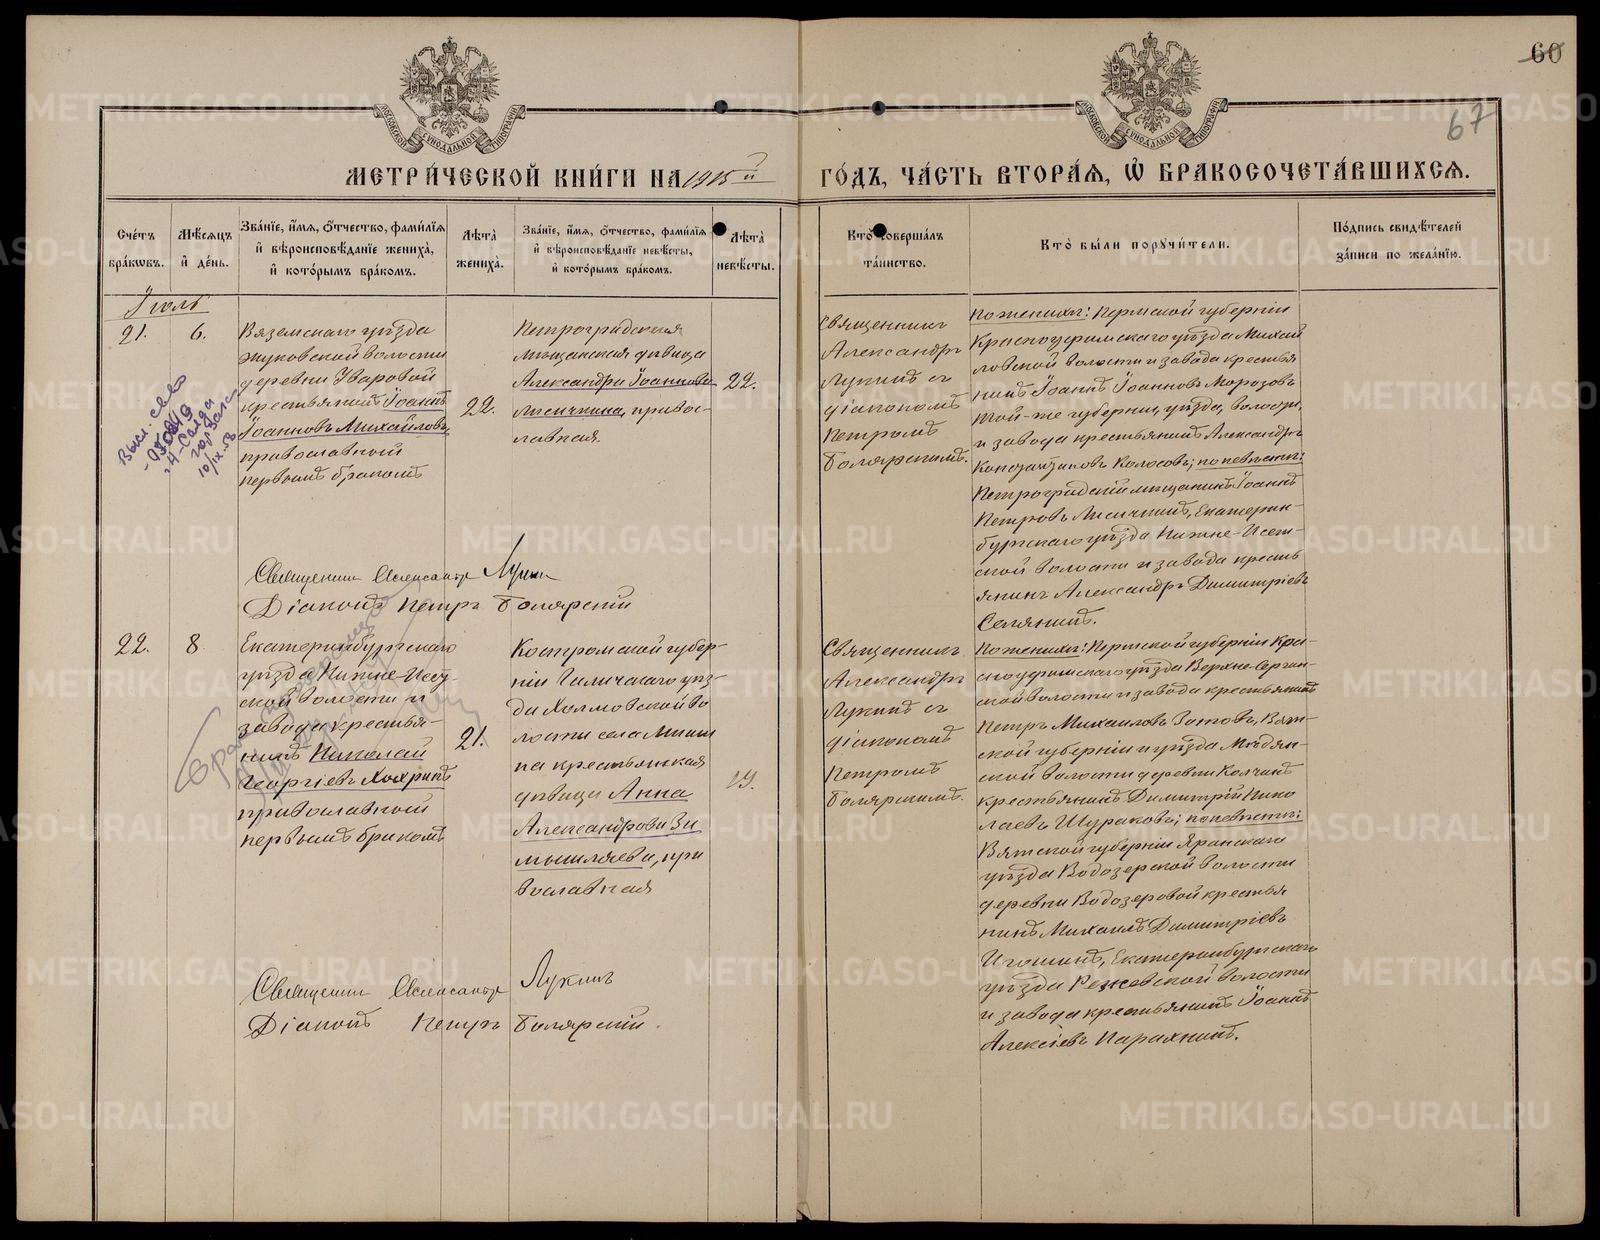 60
67
МЕТРИ́ЧЕСКОЙ КНИ́ГИ НА 1915й ГО́ДЪ, ЧА́СТЬ ВТОРА́Я, Ѡ БРАКОСОЧЕТА́ВШИХСЯ.
Сче́тъ бра́кѡвъ.
Мѣ́сяцъ и́ де́нь.
Зва́нїе, и́мя, ѻ́тчество, фами́лїя и҆ вѣроисповѣ́данїе жениха̀, и҆ кото́рымъ бра́комъ.
Лѣ́та̀ жениха̀.
Зва́нїе, и́мя, ѻ́тчество, фами́лїя и҆ вѣроисповѣ́данїе невѣ́сты, и҆ кото́рымъ бра́комъ.
Лѣ́та̀ невѣ́сты.
Кто̀ соверша́лъ та́инство.
Кто̀ бы́ли порꙋчи́тели.
По́дпись свидѣ́телей за́писи по жела́нїю.
Іюль
21.
6.
Вяземскаго уѣзда
Жуковской волости
деревни Уваровой
крестьянинъ Іоаннъ
Іоанновъ Михайловъ
православный
первымъ бракомъ
22.
Петроградская
мѣщанская дѣвица
Александра Іоаннова
Лисичкина, правос-
лавная.
22.
Священникъ
Александръ
Лукинъ съ
діакономъ
Петромъ
Болярскимъ.
По женихѣ: Пермской губерніи
Красноуфимскаго уѣзда Михай
ловской волости и завода крестья
нинъ Іоаннъ Іоанновъ Морозовъ
той-же губерніи, уѣзда, волости
и завода крестьянинъ Александръ
Константиновъ Колосовъ; по невѣстѣ:
Петроградскій мѣщанинъ Іоаннъ
Петровъ Лисичкинъ, Екатерин-
бургскаго уѣзда Нижне-Исет-
ской волости и завода кресть
янинъ Александръ Димитріевъ
Селянинъ.
Священникъ Александръ Лукинъ
Діаконъ Петръ Болярскій
22.
8
Екатеринбургскаго
уѣзда Нижне-Исет-
ской волости и
завода крестья-
нинъ Николай
Георгіевъ Хохринъ
православный
первымъ бракомъ
21.
Костромской губер-
ніи Галичскаго уѣз-
да Холмовской во
лости села
на крестьянская
дѣвица Анна
Александрова Зи
мышляева, пра
вославная
19.
Священникъ
Александръ
Лукинъ съ
діакономъ
Петромъ
Болярскимъ.
По женихѣ: Пермской губерніи Крас-
ноуфимскаго уѣзда Верхне-Сергин-
ской волости и завода крестьянинъ
Петръ Михаиловъ Зотовъ, Вят-
ской губерніи и уѣзда Мѣдян-
ской волости деревни Колчинъ
крестьянинъ Димитрій Нико
лаевъ Шураковъ; по невѣстѣ:
Вятской губерніи Яранскаго
уѣзда Водозерской волости
деревни Водозеровой крестья
нинъ Михаилъ Димитріевъ
Игошинъ, Екатеринбургскаго
уѣзда Режевской волости
и завода крестьянинъ Іоаннъ
Алексіевъ Парахнинъ.
Священникъ Александръ Лукинъ
Діаконъ Петръ Болярскій.
METRIKI.GASO-URAL.RU